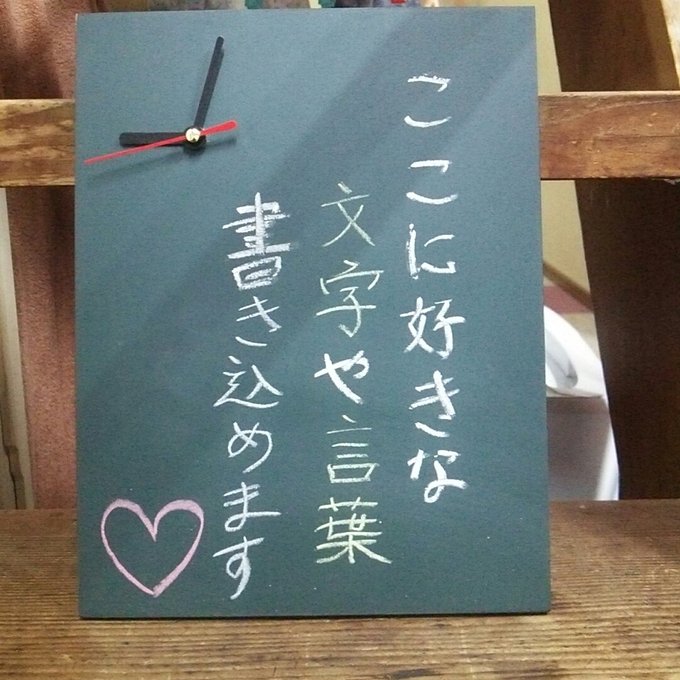 ここに好きな
文字や言葉
書き込めます